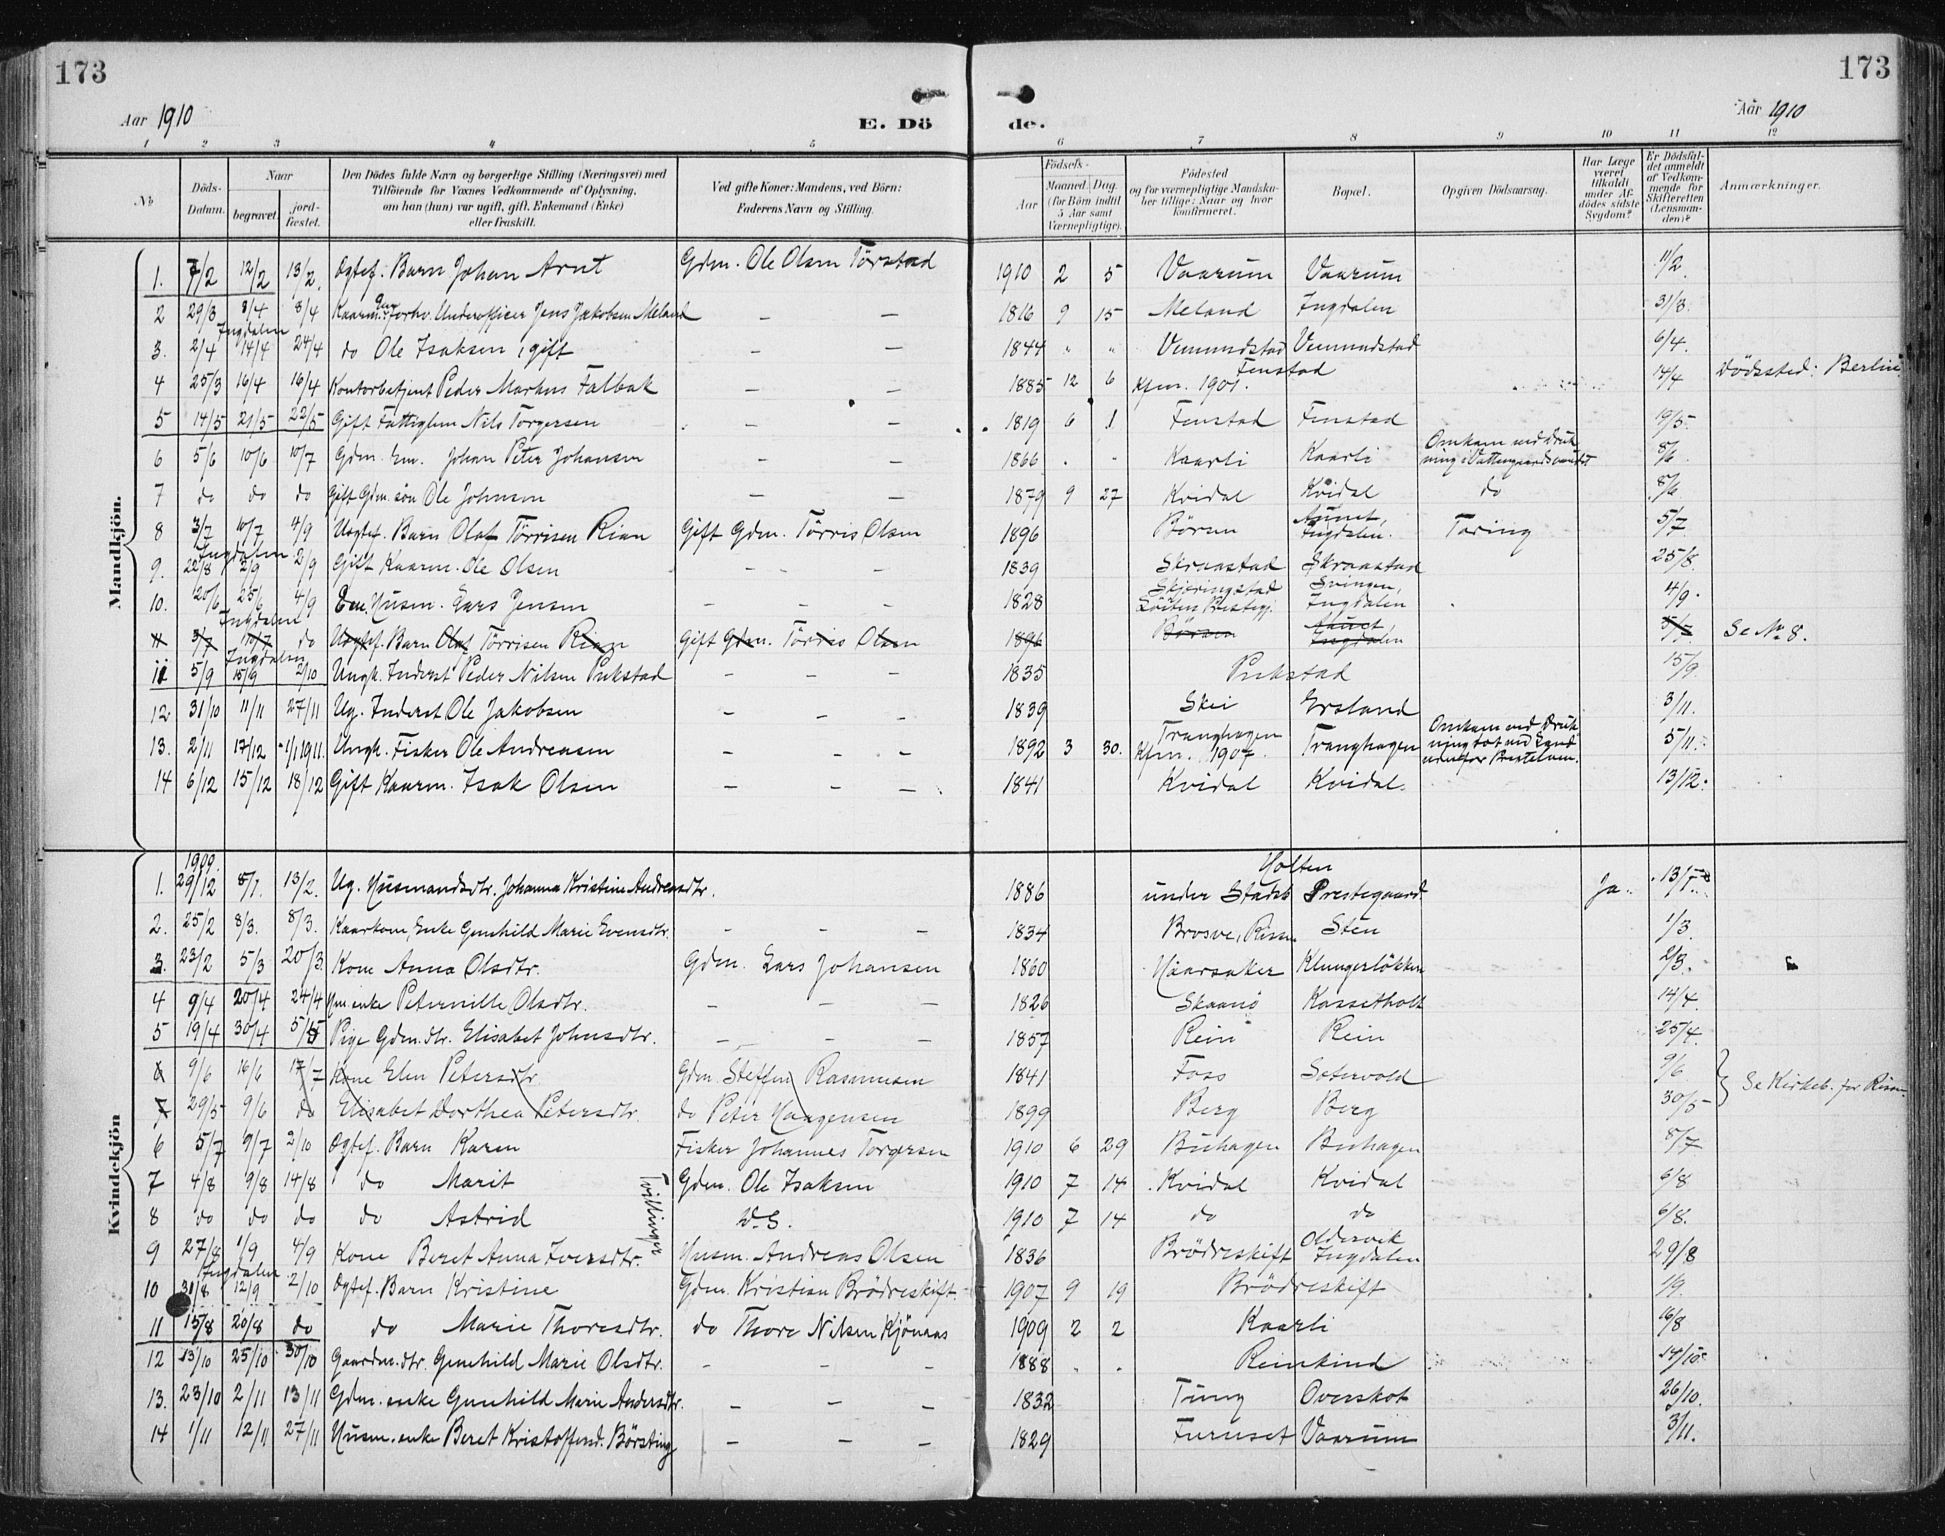 173
173
Aar 1910
E. Dö
de.
Aar 1910
1 2 3 4 5 6 7 8 9 10 11 12
No
Döds-Datum.
Naar
begravet.
jord-fæstet.
Den Dödes fulde Navn og borgerlige Stilling (Næringsvei) med
Tilföiende for Voxnes Vedkommende af Oplysning,
om han (hun) var ugift, gift, Enkemand (Enke)
eller fraskilt.
Ved gifte Koner: Mandens, ved Börn:
Faderens Navn og Stilling.
Födsels-
Aar
Maaned. Dag.
(for Börn indtil
5 Aar samt
Værnepligtige).
Födested
og for værnepligtige Mandska-
ber tillige: Naar og hvor
konfirmeret.
Bopæl.
Opgiven Dödsaarsag.
Har Læge
været
tilkaldt
under Af-
dödes sidste
Sygdom?
Er Dödsfal-
det anmeldt
af Vedkom-
mende for
Skifteretten
(Lensman-
den)?
Anmærkninger.
Mandkjön.
1. 7/2 12/2 13/2. Ægtef. Barn Johan Arnt Gdm. Ole Olsen Törstad 1910 2 5 Vaarum Vaarum 11/2.
2 29/3 8/4 8/4 Kaarm. Forhv. Underofficer Jens Jakobsen Meland — — 1816 9 15 Meland Ingdalen 31/3.
Ingdalen
3. 2/4 14/4 24/4 do Ole Isaksen, gift — — 1844 " " Vemundstad Vemundstad 6/4.
4 25/3 16/4 16/4 Kontorbetjent Peder Markus Falbak — — 1885 12 6 Kfm. 1901. Fenstad 14/4 Dödssted: Berlin.
5 14/5 21/5 22/5 Gift Fattiglem Nils Torgersen — — 1819 6 1 Fenstad Fenstad 19/5.
6 5/6 10/6 10/7 Gdm. Em. Johan Peter Johansen — — 1866 . " Kaarli Kaarli Omkom ved Druk
ning i 8/6
7 do do do Gift Gdm. sön Ole Johnsen — — 1879 9 27 Kvidal Kvidal do 8/6
8 3/7 10/7 4/9 Uægtef. Barn Olaf Törrisen Rian Gift Gdm. Törris Olsen 1896 Börun Aunet, Ingdalen. Tæring 5/7
Ingdalen
9. 22/8 2/9 2/9 Gift Kaarm. Ole Olsen - - — 1839 Skraastad Skraastad 25/8.
10. 20/6 25/6 4/9 Em. Husm. Lars Jensen — — — 1828 Skjeringstad Svingen, Ingdalen 14/9.
Ingdalen
11 3/7 10/7 do Uægtef. Barn Olaf Törrisen Rian Gift Gdm. Törris Olsen 1896 Börun Aunet, Ingdalen 5/7 Se No 8.
Ingdalen
11 5/9 15/9 2/10 Ungk. Inderst Peder Nilsen Pukstad — — — 1835 Pukstad 15/9.
12 31/10 11/11 27/11 Ug. Inderst Ole Jakobsen — — — 1839 Skei Ersland 3/11.
13. 2/11 17/12 1/1 1911. Ungk. Fisker Ole Andreasen — — — 1892 3 30. Tranghagen
Kfm. 1907. Tranghagen Omkom ved Druk
ning 5/11.
14 6/12 15/12 18/12 Gift Kaarm. Isak Olsen — — — 1841 Kvidal Kvidal. 13/12.
Kvindekjön
1909.
1. 29/12 8/1. 13/2. Ug. Husmandsdtr. Johanna Kristine Andreasdtr. 1886 Holten
under Stadsb Prestegaard. Ja. 13/1.
2. 25/2 8/3. 8/3. Kaarkone, Enke Gunhild Marie Evensdtr. — — — 1834 Brosve, Rissen Sten 1/3.
3. 23/2 5/3 20/3. Kone Anna Olsdtr. Gdm. Lars Johansen 1860 Haarsaker Klungerlökken 2/3.
4 9/4 20/4 24/4 Hm. enke Peternille Olsdtr. — — — 1826 Skaanö Kassetholt 14/4.
5 19/4 30/4 5/5 Pige Gdm. dtr. Elisabet Johnsdtr. — — — 1857 Rein Rein 25/4.
6 9/6 16/6 17/7 Kone Elen Petersdtr. Gdm. Steffen Rasmussen 1841 Foss Setervold 9/6
7 29/5 9/6 do Elisabet Dorthea Petersdtr. do Peter Haagensen 1899 Berg Berg 30/5 } Se Kirkeb. for Rissen
6 5/7 9/7 2/10 Ægtef. Barn Karen Fisker Johannes Torgersen 1910 6 29 Buhagen Buhagen 8/7
7 4/8 9/8 14/8 do Marit Tvillinger Gdm. Ole Isaksen 1910 7 14 Kvidal Kvidal 6/8
8 do do do do Astrid D. S. 1910 7 14 do do 6/8.
9 27/8 1/9 4/9 Kone Beret Anna Iversdtr. Husm. Andreas Olsen 1836 Brödreskift Oldervik
Ingdalen 29/8
Ingdalen
10 31/8 12/9 2/10 Ægtef. Barn Kristine Gdm. Kristian Brödreskift. 1907 9 19 Brödreskift 1/9.
11 15/8 20/8 do do Marie Thoresdtr. do Thore Nilsen Kjönaas 1909 2 2 Kaarli 16/8
12 13/10 25/10 30/10 Gaardm. dtr. Gunhild Marie Olsdtr. — — — 1888 . . Reinkind 14/10.
13. 23/10 2/11 13/11 Gdm. enke Gunhild Marie Andersdtr. — — — 1832 Tung Overskot 26/10.
14 1/11 12/11 27/11 Husm. enke Beret Kristoffersd. Börsting — — — 1829 Furuset Vaarum 3/11.